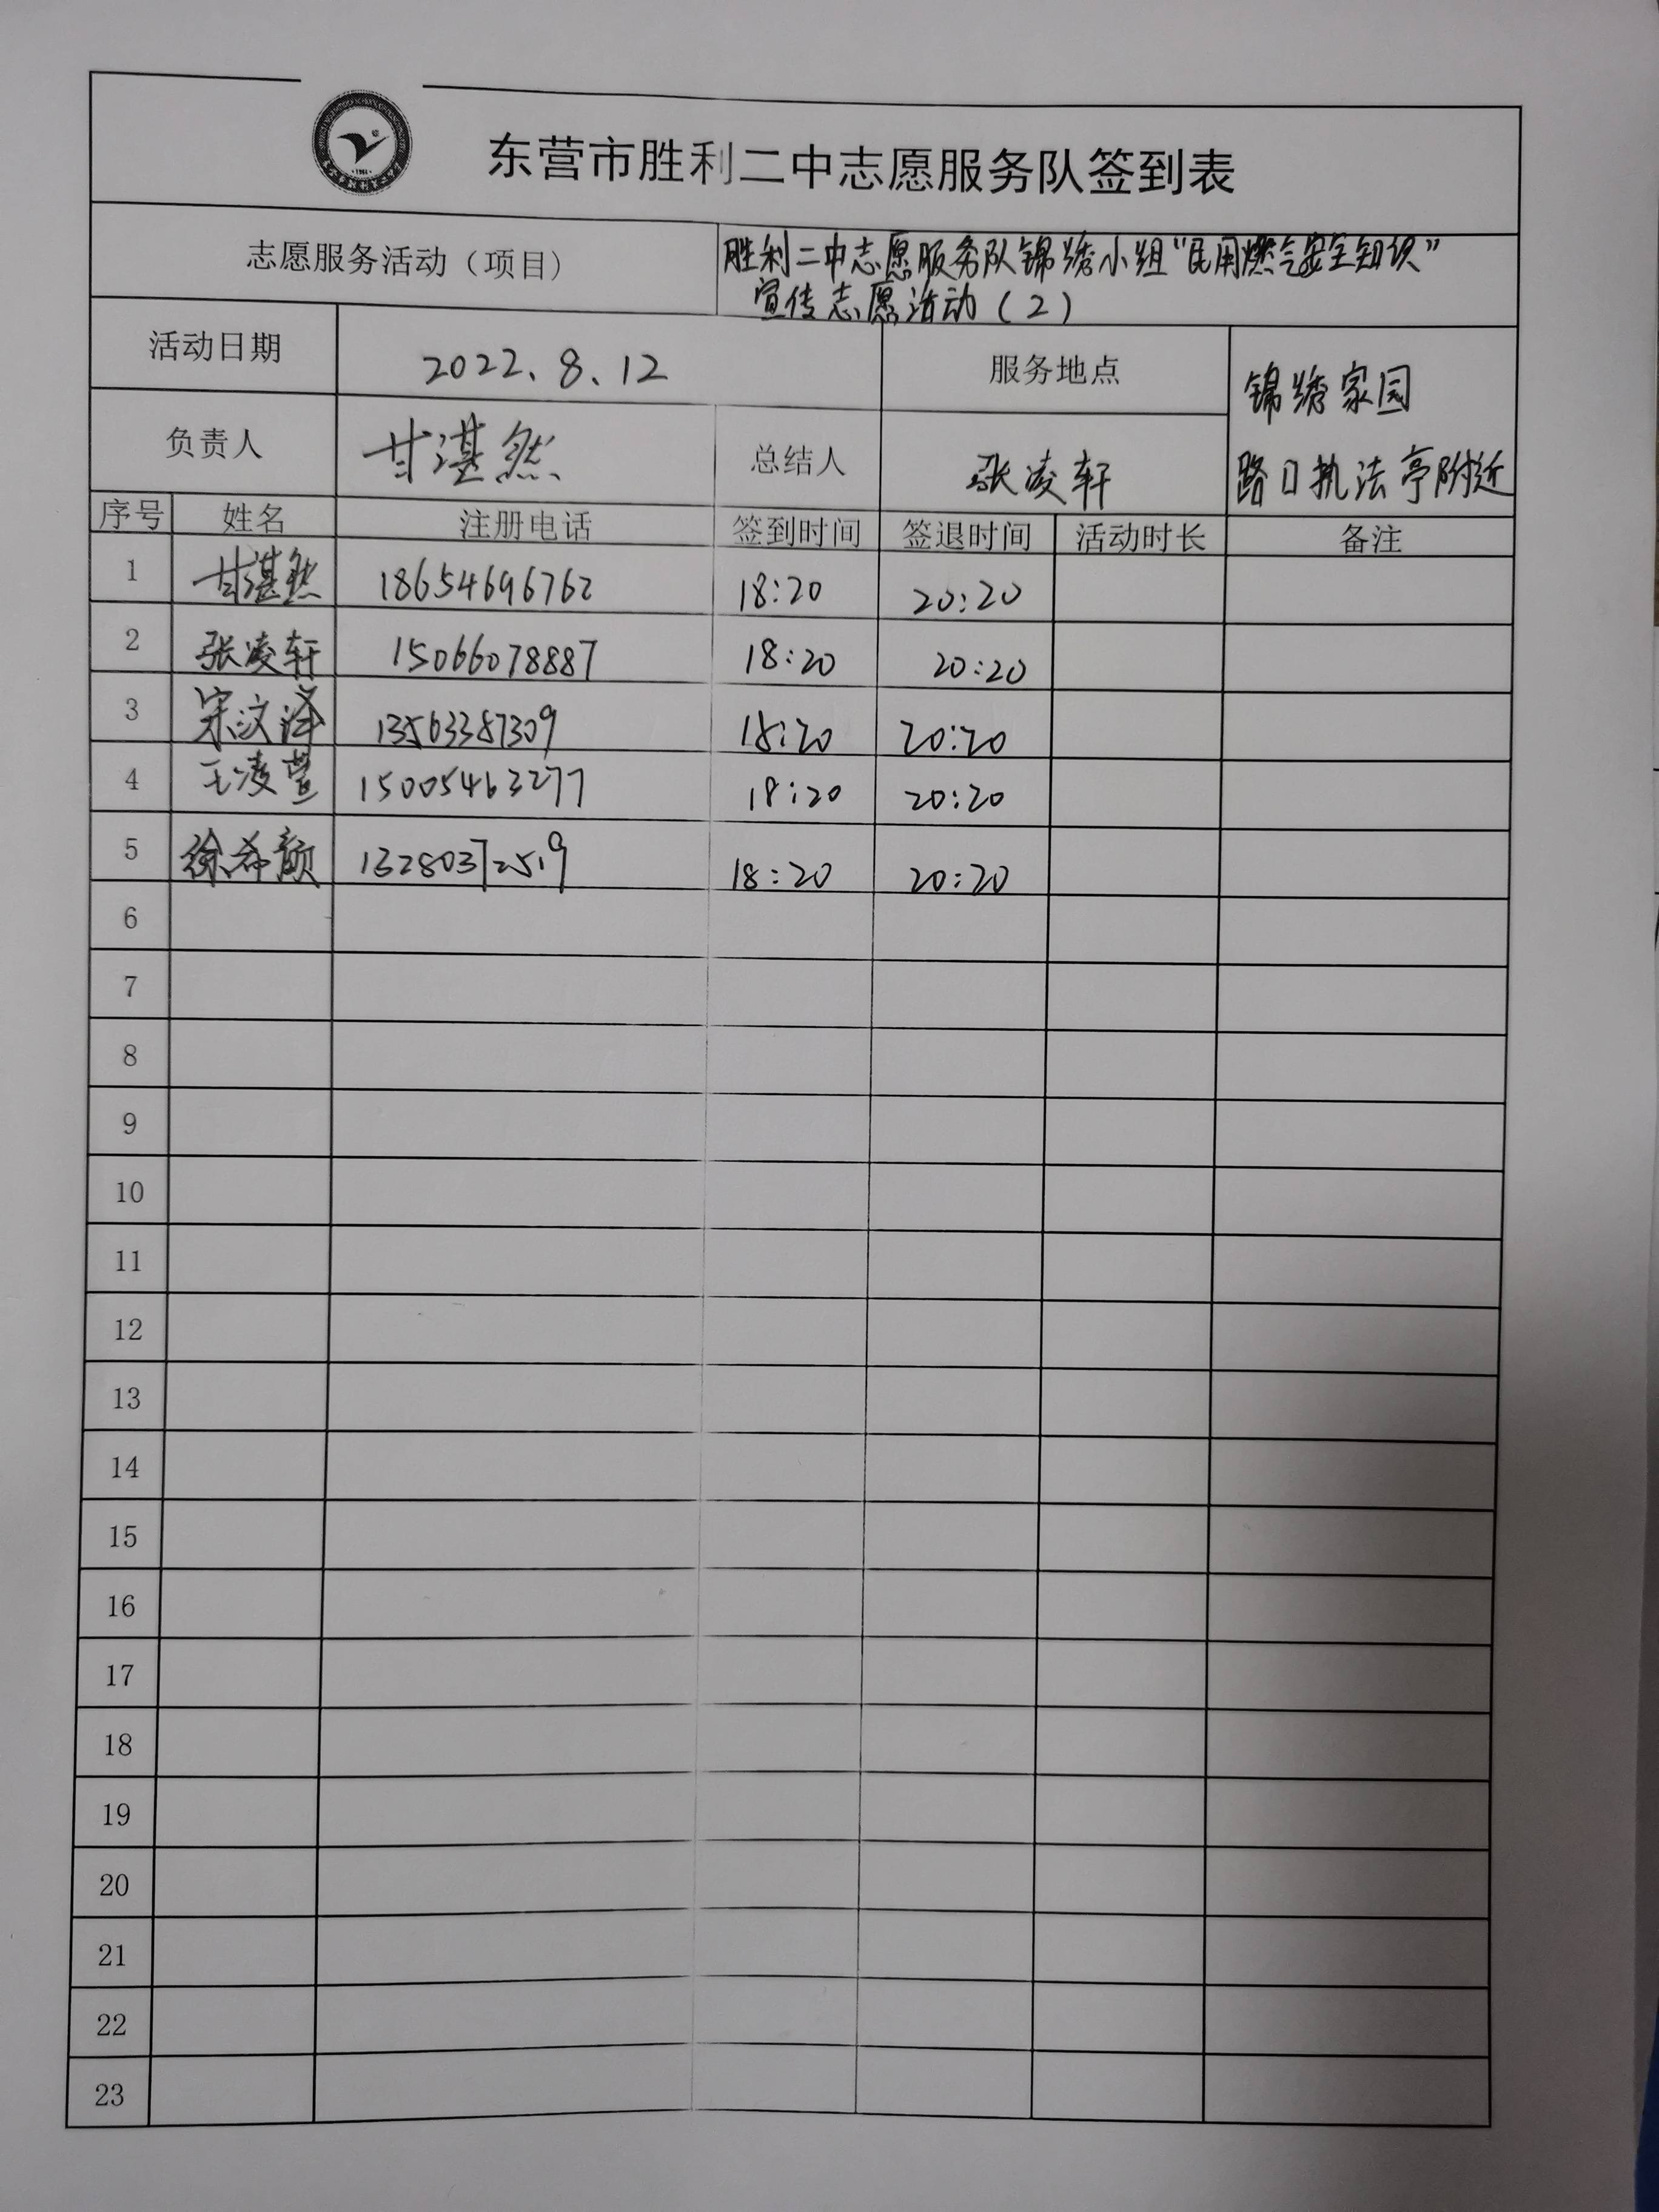 东营市胜利二中志愿服务队签到表
志愿服务活动（项目） 胜利二中志愿服务队锦绣小组“民用燃气安全知识”
宣传志愿活动（2）
活动日期 2022、8、12 服务地点 锦绣家园
负责人 甘湛然 总结人 张凌轩 路口执法亭附近
序号 姓名 注册电话 签到时间 签退时间 活动时长 备注
1 甘湛然 18654696762 18:20 20:20
2 张凌轩 15066078887 18:20 20:20
3 宋汶泽 13563387309 18:20 20:20
4 王凌萱 15005463277 18:20 20:20
5 徐希颜 13280372519 18:20 20:20
6
7
8
9
10
11
12
13
14
15
16
17
18
19
20
21
22
23